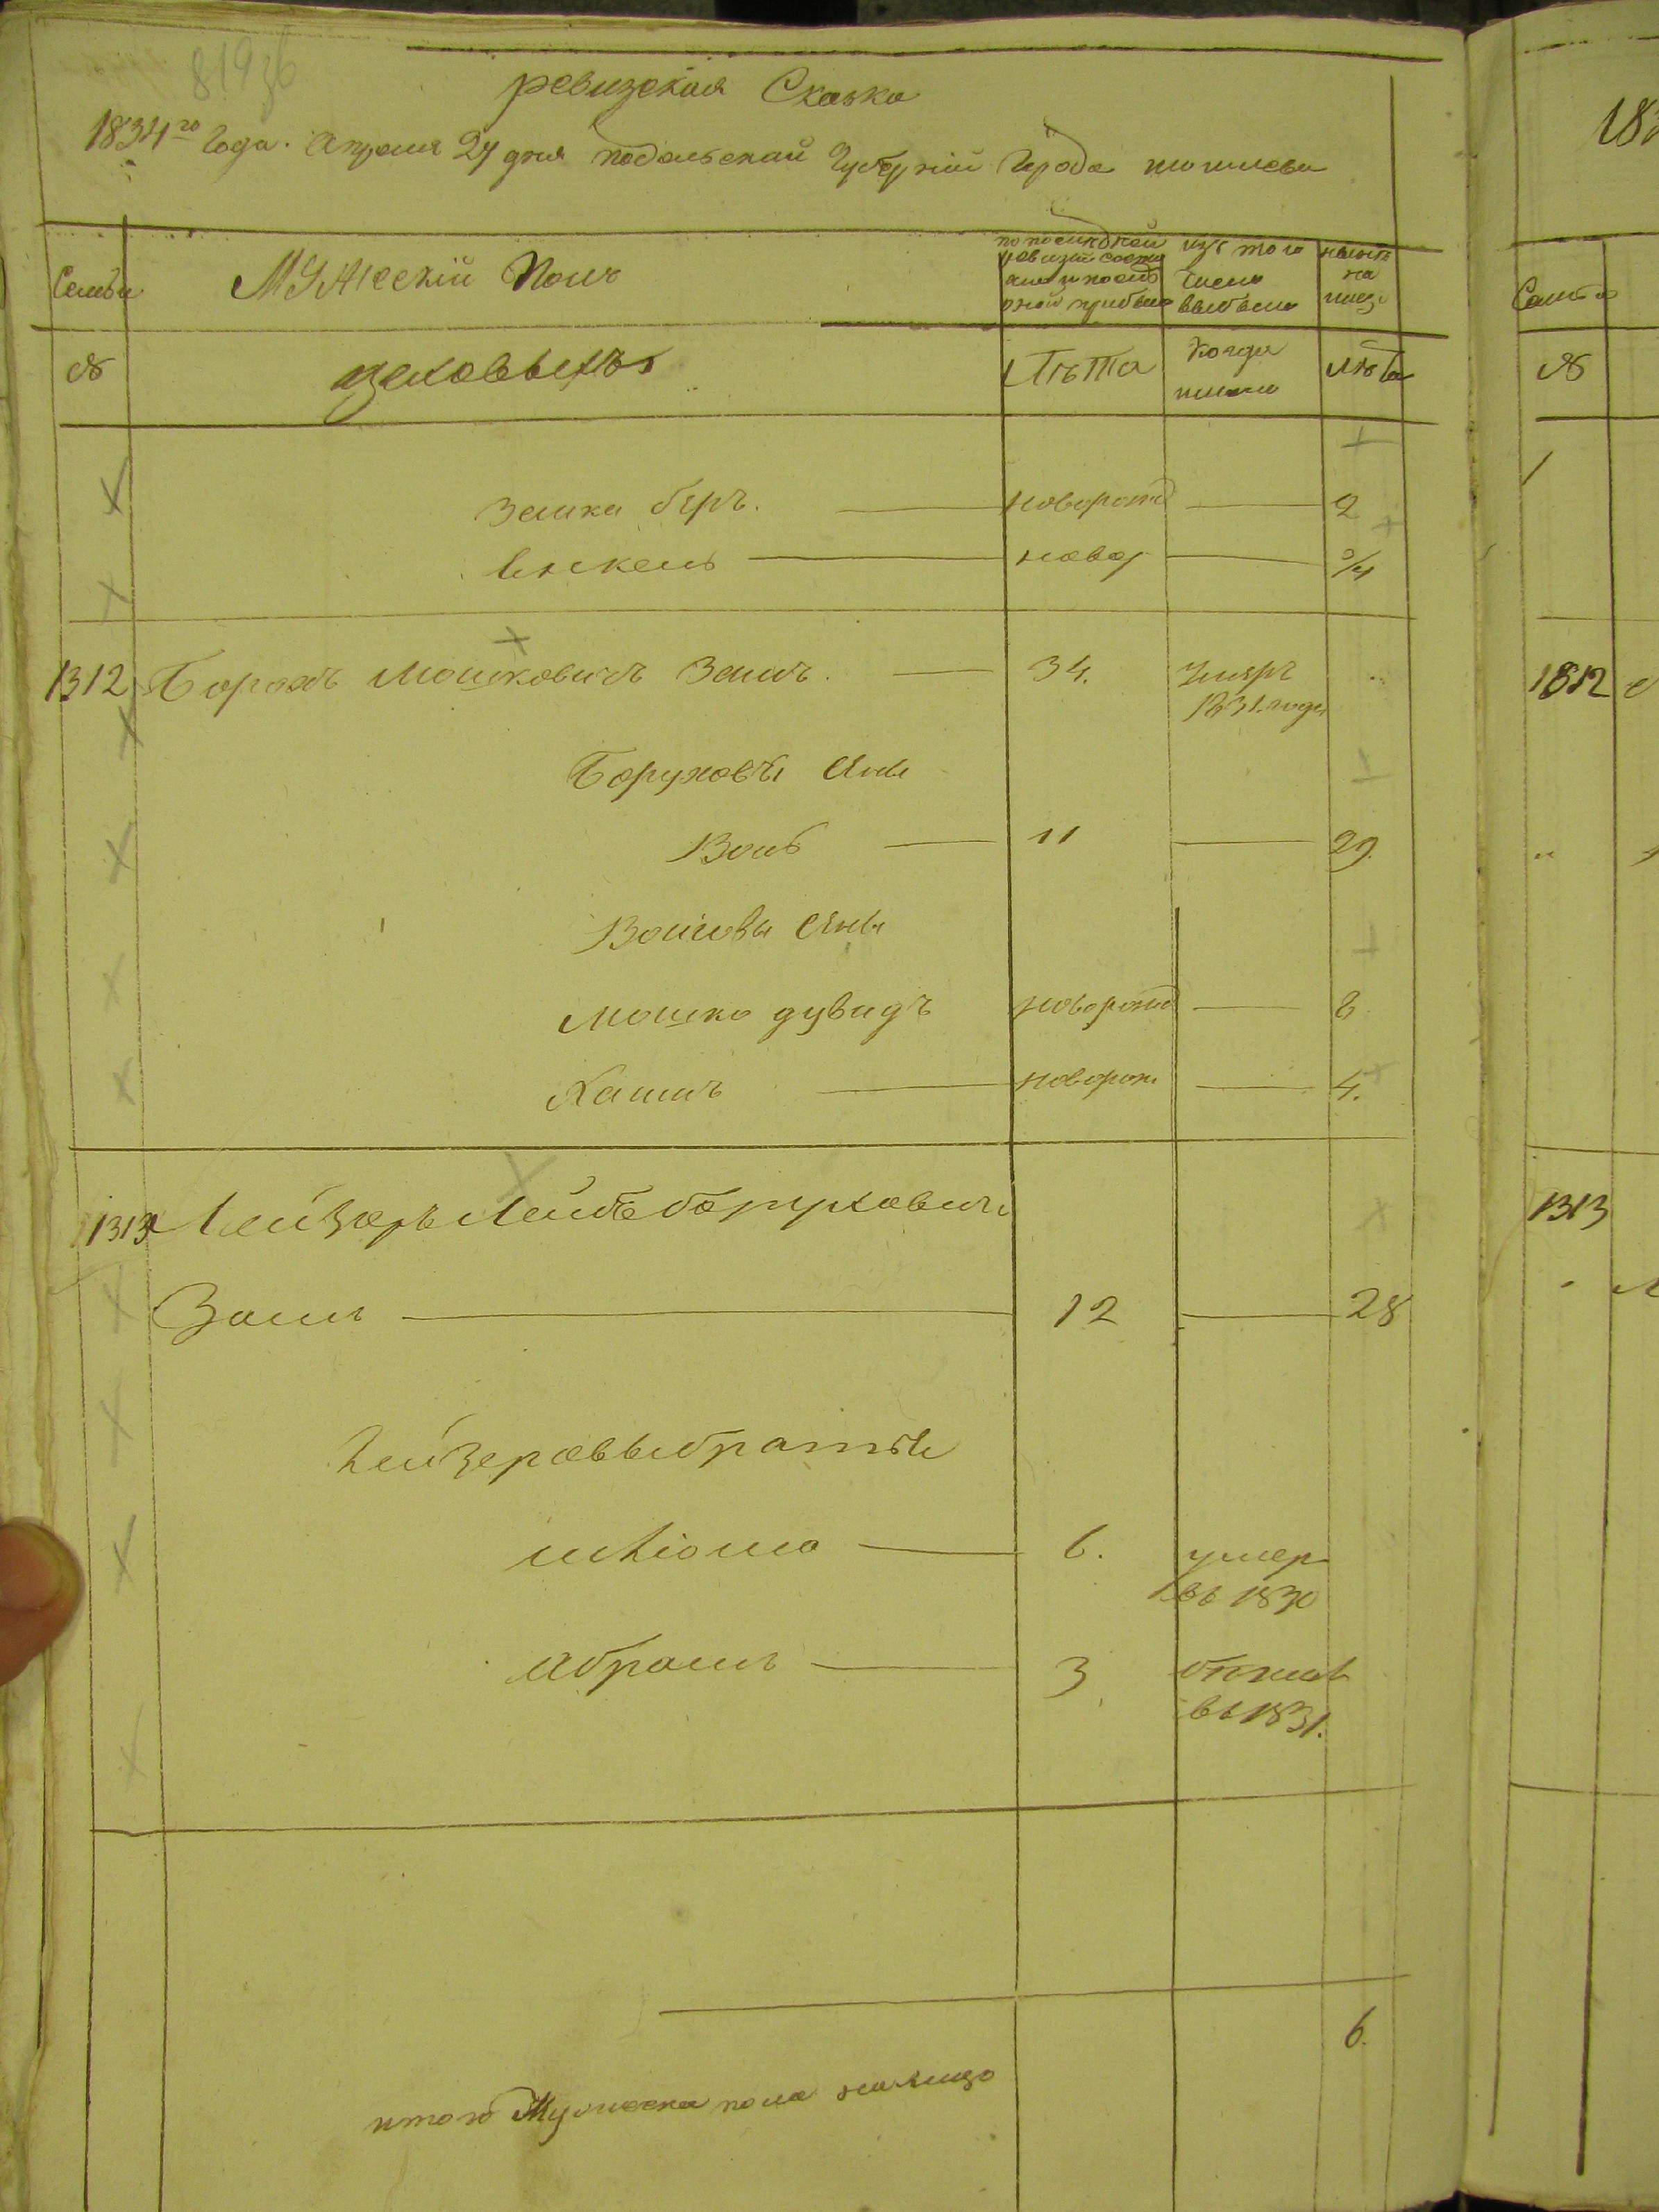 819 зб
ревизская Сказка
1834го Года. Апреля 27 дня подольской Губерний Города могилева
Семьи
Мужескій Полъ
по последней ревизии состояло и после оной прибыло
изъ того числа выбыло
ныне на лицо
№
человекъ
Лѣта
Когда имено
лѣта
Зелика беръ. новорожд 2
новор 3/4
1312 Борохъ Мошковичъ Зелил. 34. умеръ
1831. года
Боруховы Сыны
Волъ 11 29.
Волковы Сыны
Мошко дувидъ новорожд 8
Хаимъ новорож 4.
1313 Лейзеръ Лейбъ боруховичъ
Зелил 12 28
Лейзеровы братьи
шлиома 6. умер
въ 1830
Абрамъ 3
въ 1831.
6.
итого Мужеска пола налицо
183
Семьи
№
1
1312
1313